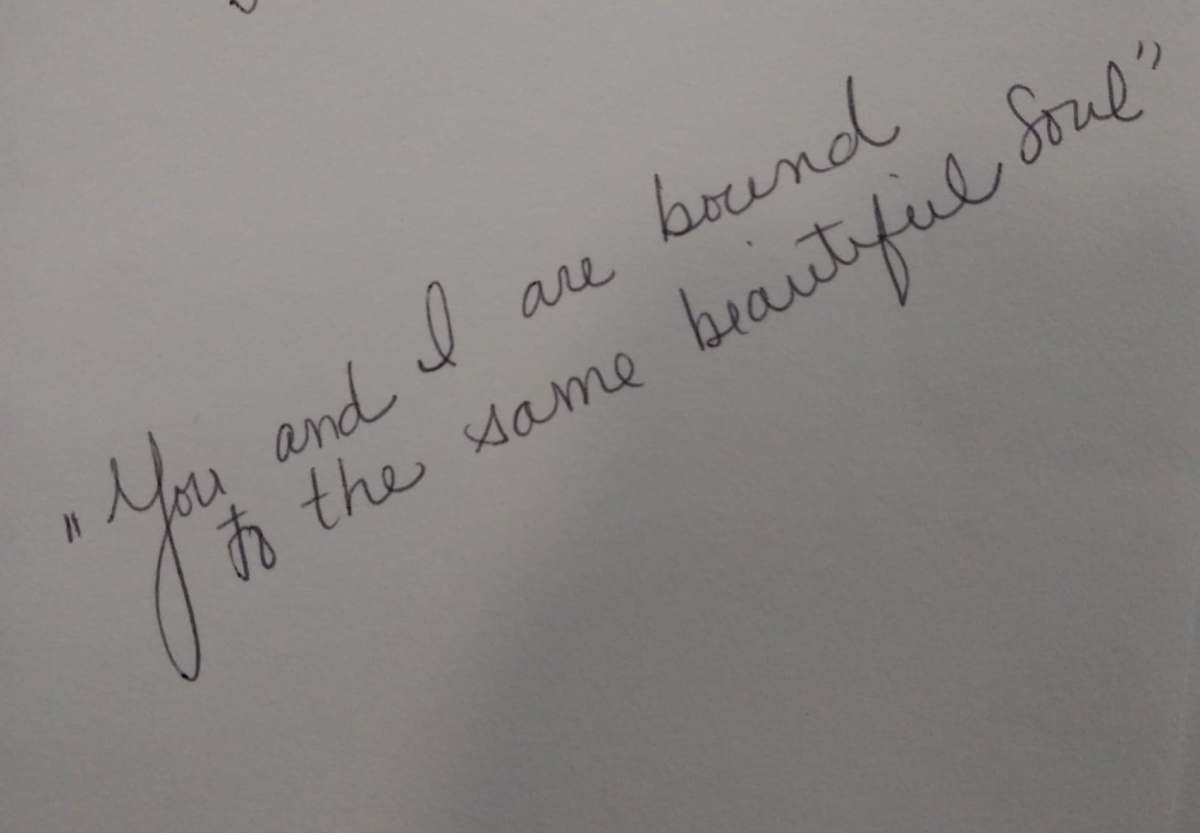 „You and I are bound
to the same beautiful Soul”